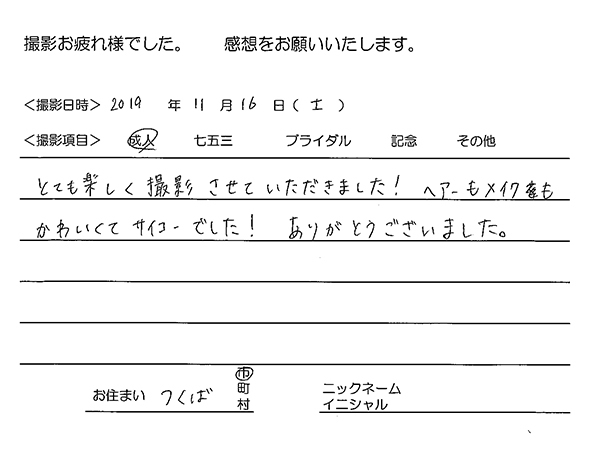 撮影お疲れ様でした。 感想をお願いいたします。
<撮影日時> 2019 年 11 月 16 日 ( 土 )
<撮影項目> 成人 七五三 ブライダル 記念 その他
とても楽しく撮影させていただきました! ヘアーもメイクも
かわいくてサイコーでした! ありがとうございました。
お住まい つくば 市 町 村 ニックネーム イニシャル